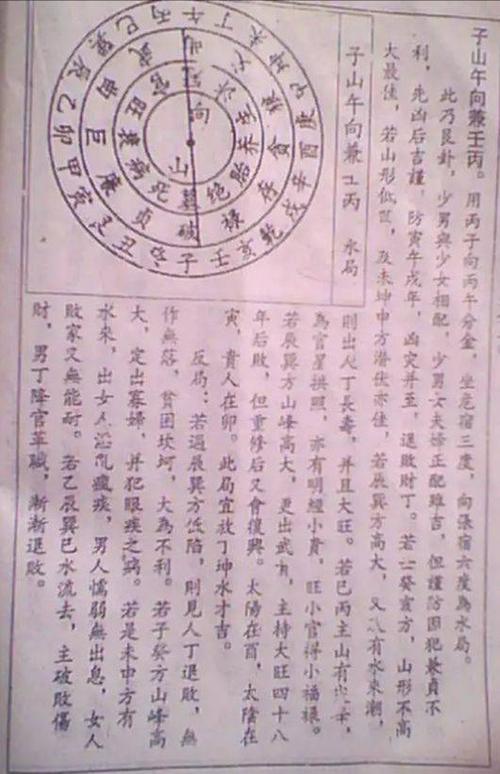 子山午向兼壬丙。用丙子向丙午分金，坐危宿三度，向張宿六度為水局。
此乃艮卦，少男與少女相配，少男女夫婦正配雖吉，但謹防因犯兼貞不
利，先凶后吉謹，防寅午戌年，凶灾并至，退敗財丁。若壬癸亥方，山形不高
大最佳，若山形低，及未坤申方潜伏亦佳，若辰巽方高大，又有水朱潮，
子山午向兼壬丙 水局
則出人丁長壽，并且大旺。若巳丙主山有，
為官星拱照，亦有明經小貴，旺小官得小福祿。
若辰巽方山峰高大，更出武，主持大旺四十八
年后敗，但重修后又會復興。太陽在酉，太陰在
寅，貴人在卯。此局宜放丁坤水才吉。
反局：若過辰巽方低陷，則見人丁退敗，無
作無落，貧困坎坷，大為不利。若子癸方山峰高
大，定出寡婦，并犯眼疾之病。若是未申方有
水來，出女人淫亂癡疾，男人懦弱無出息，女人
敗家又無能耐。若乙辰巽巳水流去，主破敗傷
財，男丁降官革職，漸漸退敗。
向
山
官旺衰病死墓绝胎养生
武 曲 巨 廉 貞 破 祿 存 貪
丙巳巽辰乙卯甲寅艮丑癸子壬亥乾戌辛酉庚申坤未丁午